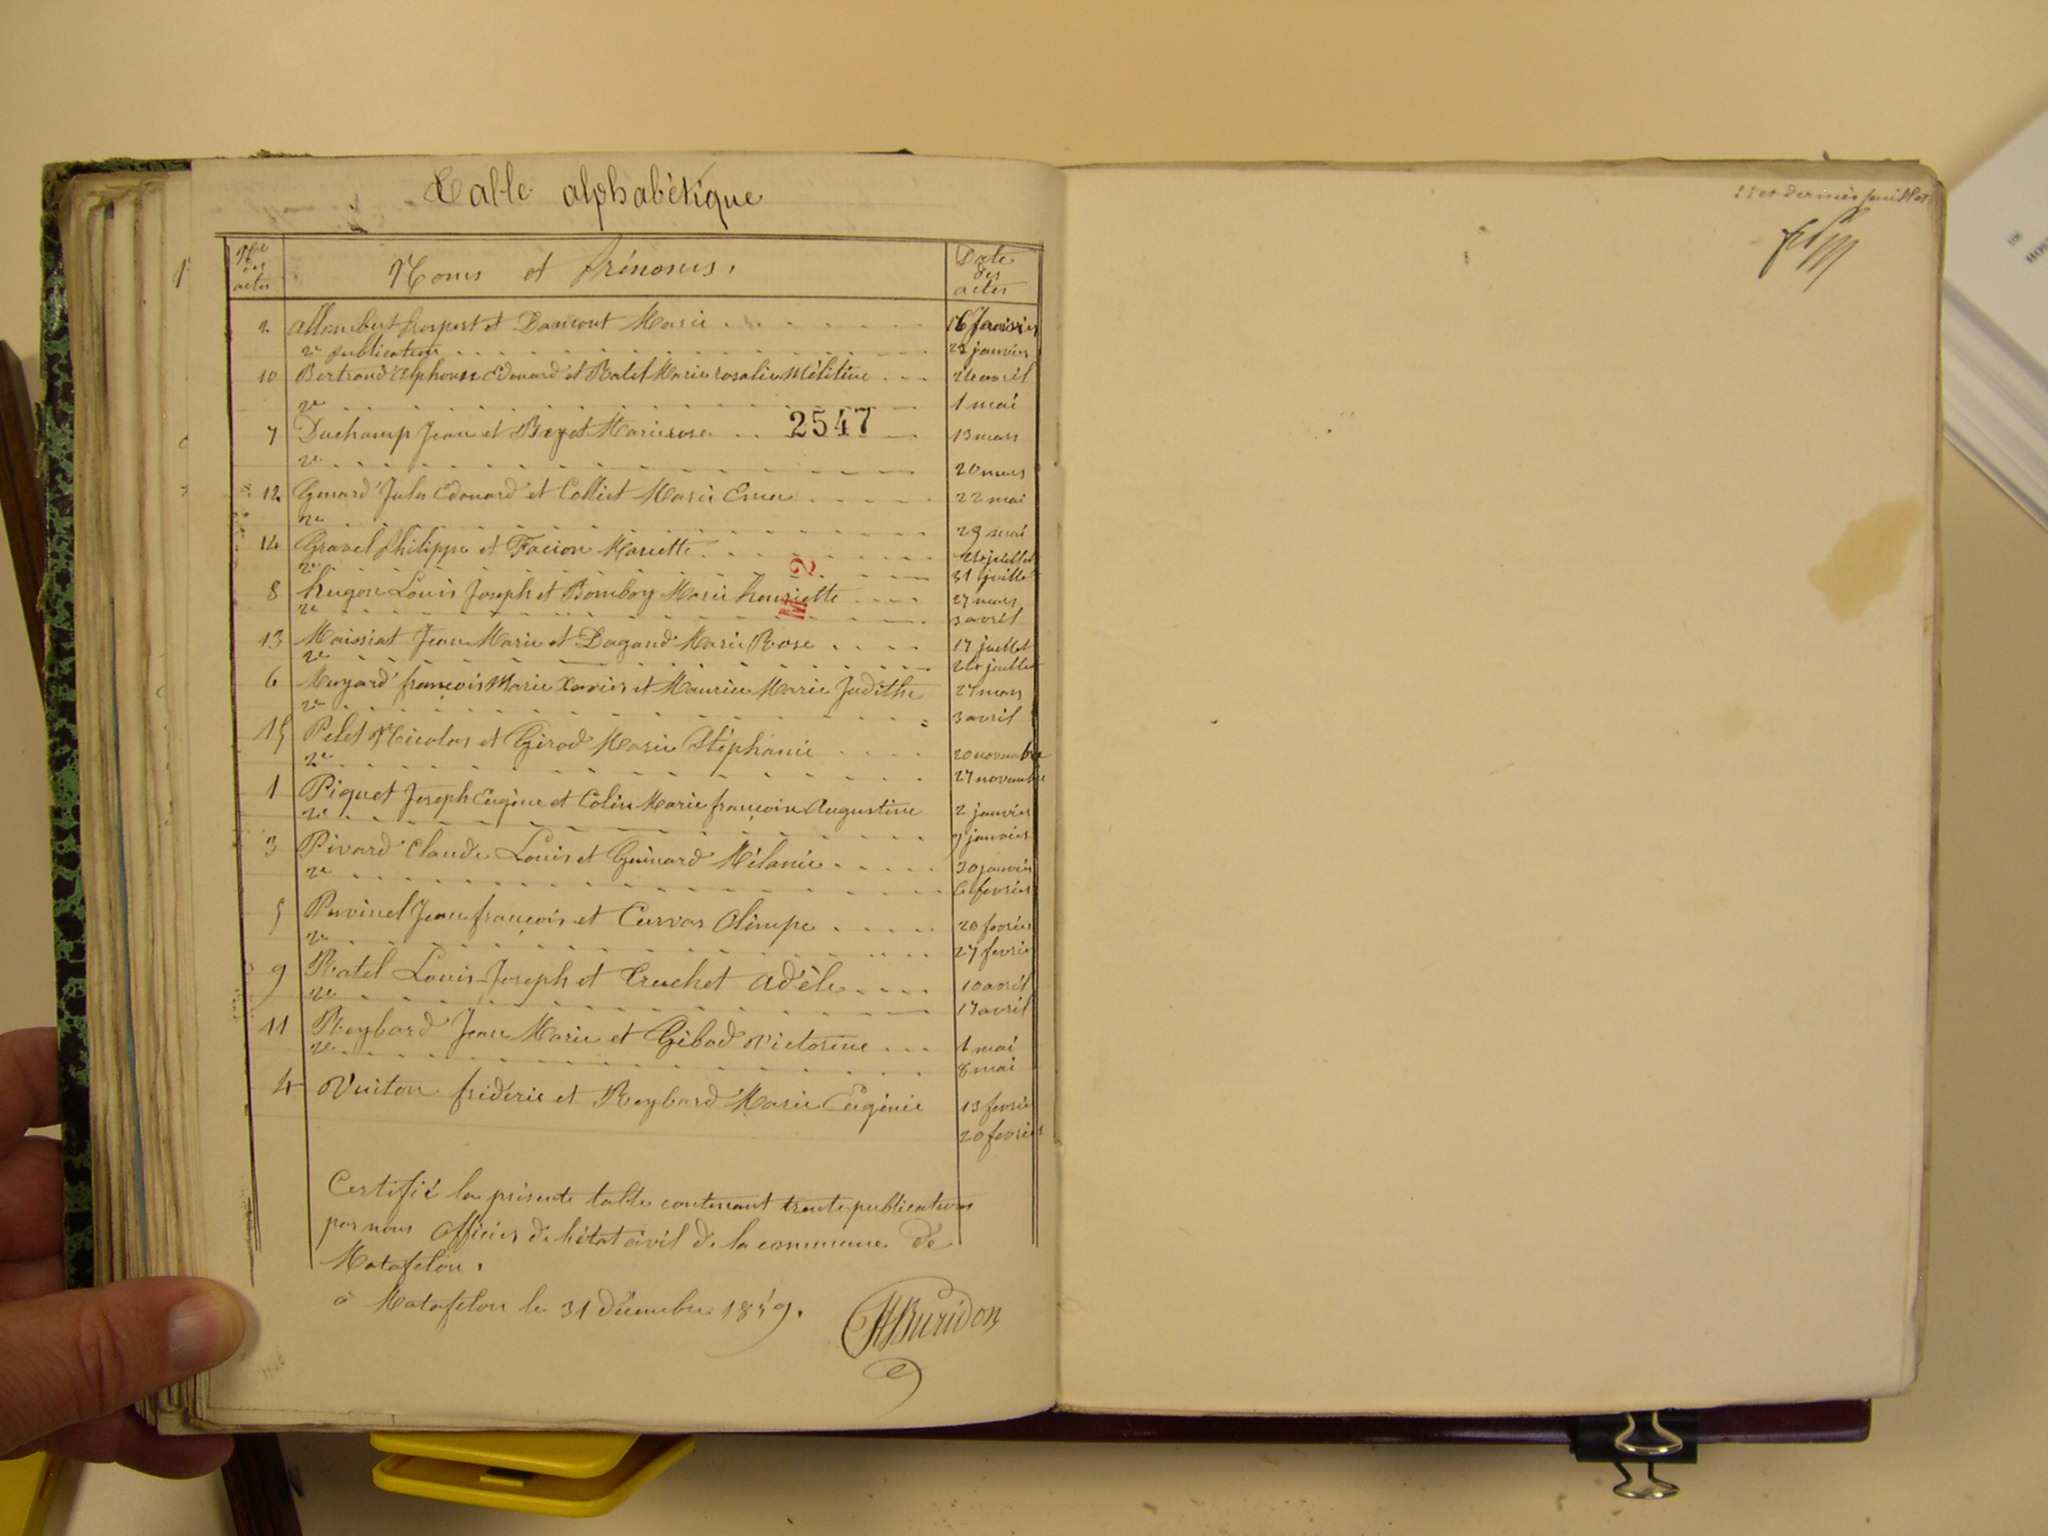 Table alphabétique
Nos des actes
Noms et prénoms.
Date des actes
2 Allombert prospert et Dancout Marie 16 Janvier
2e publication 23 janvier
10 Bertrand Alphonse Edouard et Ratel Marie rosalie Mélitine 24 avril
2e 1 mai
2547
7 Duchamp Jean et Boyat Marie rose 13 mars
2e 20 mars
12 Genard Jules Edouard et Colliet Marie 22 mai
2e 29 mai
14 Gravel philippe et Facion Mariette 24 juillet
2e 31 juillet
M 2
8 hugon Louis Joseph et Bomboy Marie henriette 27 mars
2e 3 avril
13 Maissiat Jean Marie et Dagand Marie Rose 17 juillet
2e 24 juillet
6 Moyard françois Marie Xavier et Maurier Marie Judithe 27 mars
2e 3 avril
15 Pelet Nicolas et Girod Marie Stéphanie 20 novembre
2e 27 novembre
1 Piquet Joseph Eugène et Colin Marie françoise Augustine 2 janvier
2e 9 janvier
3 Pivard Claude Louis et Guinard Mélanie 30 janvier
2e 6 fevrier
5 Jean françois et Curvas Olimpe 20 fevrier
2e 27 fevrier
9 Ratel Louis Joseph et Cruchet Adèle 10 avril
2e 17 avril
11 Reybard Jean Marie et Gibod Victorine 1 mai
2e 8 mai
4 Vuiton fridéric et Reybard Marie Eugénie 13 fevrier
20 fevrier
Certifié la présente table contenant trente publications
par nous Officier de l'état civil de la commune de
Matafelon.
à Matafelon le 31 décembre 1859.
Buridon
et dernier feuillet